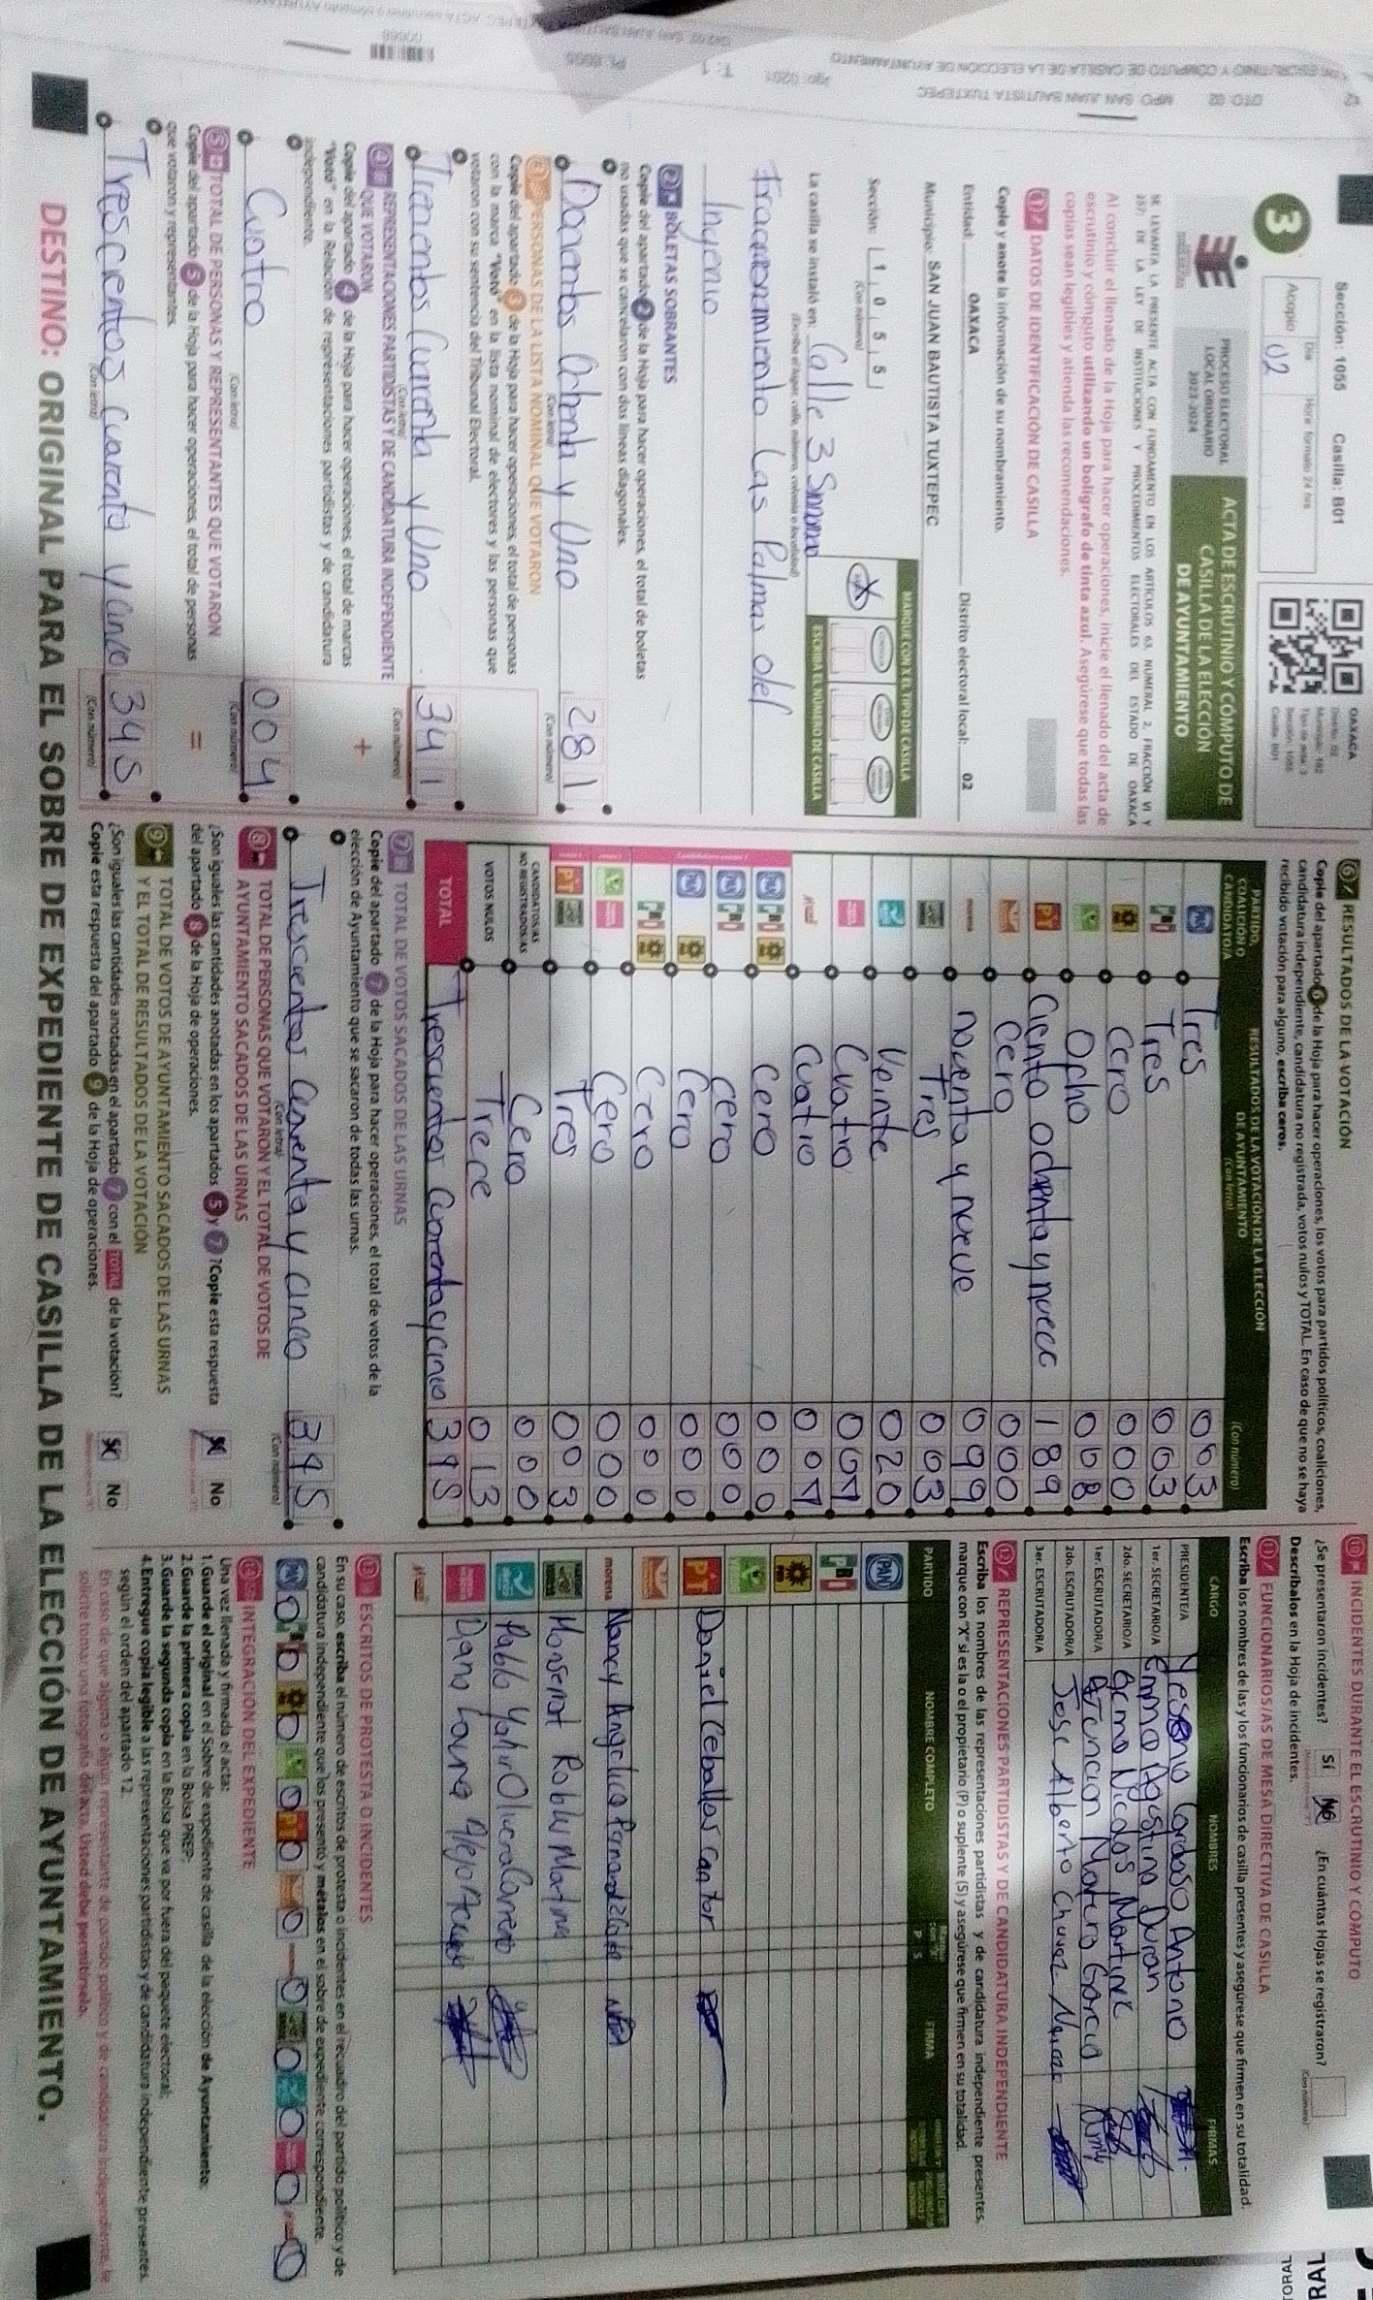 Sección: 1055 Casilla: B01
3
Acopio
Día
Hora: formato 24 hrs
02
OAXACA
PROCESO ELECTORAL
LOCAL ORDINARIO
2023-2024
ACTA DE ESCRUTINIO Y CÓMPUTO DE
CASILLA DE LA ELECCIÓN
DE AYUNTAMIENTO
SE LEVANTA LA PRESENTE ACTA CON FUNDAMENTO EN LOS ARTÍCULOS 63, NUMERAL 2, FRACCIÓN VI Y
257; DE LA LEY DE INSTITUCIONES Y PROCEDIMIENTOS ELECTORALES DEL ESTADO DE OAXACA
Al concluir el llenado de la Hoja para hacer operaciones, inicie el llenado del acta de
escrutinio y cómputo utilizando un bolígrafo de tinta azul. Asegúrese que todas las
copias sean legibles y atienda las recomendaciones.
1 DATOS DE IDENTIFICACIÓN DE CASILLA
Copie y anote la información de su nombramiento.
Entidad: OAXACA Distrito electoral local: 02
Municipio: SAN JUAN BAUTISTA TUXTEPEC
Sección: 1 0 5 5
(Con número)
MARQUE CON X EL TIPO DE CASILLA
ESCRIBA EL NÚMERO DE CASILLA
La casilla se instaló en: Calle 3
(Escriba el lugar: calle, número, colonia o localidad)
Fraccionamiento las Palmas del
Ingenio
2 BOLETAS SOBRANTES
Copie del apartado 2 de la Hoja para hacer operaciones, el total de boletas
no usadas que se cancelaron con dos líneas diagonales.
Docientos Ochenta y Uno 281
(Con letra) (Con número)
3 PERSONAS DE LA LISTA NOMINAL QUE VOTARON
Copie del apartado 3 de la Hoja para hacer operaciones, el total de personas
con la marca "Votó" en la lista nominal de electores y las personas que
votaron con su sentencia del Tribunal Electoral.
Trecientos Cuarenta y Uno 341
(Con letra) (Con número)
4 REPRESENTACIONES PARTIDISTAS Y DE CANDIDATURA INDEPENDIENTE
QUE VOTARON
Copie del apartado 4 de la Hoja para hacer operaciones, el total de marcas
"Votó" en la Relación de representaciones partidistas y de candidatura
independiente.
+
Cuatro 004
(Con letra) (Con número)
5 TOTAL DE PERSONAS Y REPRESENTANTES QUE VOTARON
Copie del apartado 5 de la Hoja para hacer operaciones, el total de personas
que votaron y representantes.
=
Trescientos Cuarenta y Cinco 345
(Con letra) (Con número)
6 RESULTADOS DE LA VOTACIÓN
Copie del apartado 6 de la Hoja para hacer operaciones, los votos para partidos políticos, coaliciones,
candidatura independiente, candidatura no registrada, votos nulos y TOTAL. En caso de que no se haya
recibido votación para alguno, escriba ceros.
PARTIDO, COALICIÓN O CANDIDATO/A RESULTADOS DE LA VOTACIÓN DE LA ELECCIÓN DE AYUNTAMIENTO (Con letra) (Con número)
PAN Tres 003
PRI Tres 003
PRD Cero 000
Ocho 008
PT Ciento ochenta y nueve 189
Cero 000
morena noventa y nueve 099
Tres 003
Veinte 020
Cuatro 004
Cuatro 004
PAN PRI PRD Cero 000
PAN PRI Cero 000
PAN PRD Cero 000
PRI PRD Cero 000
Cero 000
PT Tres 003
CANDIDATOS/AS NO REGISTRADOS/AS Cero 000
VOTOS NULOS Trece 013
TOTAL Trescientos Cuarenta y cinco 345
7 TOTAL DE VOTOS SACADOS DE LAS URNAS
Copie del apartado 7 de la Hoja para hacer operaciones, el total de votos de la
elección de Ayuntamiento que se sacaron de todas las urnas.
Trescientos Cuarenta y cinco 345
(Con letra) (Con número)
8 TOTAL DE PERSONAS QUE VOTARON Y EL TOTAL DE VOTOS DE
AYUNTAMIENTO SACADOS DE LAS URNAS
¿Son iguales las cantidades anotadas en los apartados 5 y 7? Copie esta respuesta
del apartado 8 de la Hoja de operaciones.
Sí No
9 TOTAL DE VOTOS DE AYUNTAMIENTO SACADOS DE LAS URNAS
Y EL TOTAL DE RESULTADOS DE LA VOTACIÓN
¿Son iguales las cantidades anotadas en el apartado 7 con el TOTAL de la votación?
Copie esta respuesta del apartado 9 de la Hoja de operaciones.
Sí No
10 INCIDENTES DURANTE EL ESCRUTINIO Y CÓMPUTO
¿Se presentaron incidentes? Sí No ¿En cuántas Hojas se registraron?
(Con número)
Descríbalos en la Hoja de incidentes.
11 FUNCIONARIOS/AS DE MESA DIRECTIVA DE CASILLA
Escriba los nombres de las y los funcionarios de casilla presentes y asegúrese que firmen en su totalidad.
CARGO NOMBRES FIRMAS
PRESIDENTE/A Yesenia Cardoso Antonio
1er. SECRETARIO/A Emma Agustina Duran
2do. SECRETARIO/A Nicolas Martinez
1er. ESCRUTADOR/A Asuncion Montero Garcia
2do. ESCRUTADOR/A Jose Alberto Chavez
3er. ESCRUTADOR/A
12 REPRESENTACIONES PARTIDISTAS Y DE CANDIDATURA INDEPENDIENTE
Escriba los nombres de las representaciones partidistas y de candidatura independiente presentes,
marque con "X" si es la o el propietario (P) o suplente (S) y asegúrese que firmen en su totalidad.
PARTIDO NOMBRE COMPLETO P S FIRMA
PAN
PRI
PRD
PT Daniel Ceballos Cantor
morena Nancy Angelica
Monserrat Robles Martinez
Pablo Yahir Olivera Carrera
Diana Laura Alejo
13 ESCRITOS DE PROTESTA O INCIDENTES
En su caso, escriba el número de escritos de protesta o incidentes en el recuadro del partido político y de
candidatura independiente que los presentó y métalos en el sobre de expediente correspondiente.
14 INTEGRACIÓN DEL EXPEDIENTE
Una vez llenada y firmada el acta:
1. Guarde el original en el Sobre de expediente de casilla de la elección de Ayuntamiento;
2. Guarde la primera copia en la Bolsa PREP;
3. Guarde la segunda copia en la Bolsa que va por fuera del paquete electoral;
4. Entregue copia legible a las representaciones partidistas y de candidatura independiente presentes,
según el orden del apartado 12.
En caso de que alguna o algún representante de partido político y de candidatura independiente, le
solicite tomar una fotografía del acta, Usted debe permitírselo.
DESTINO: ORIGINAL PARA EL SOBRE DE EXPEDIENTE DE CASILLA DE LA ELECCIÓN DE AYUNTAMIENTO.